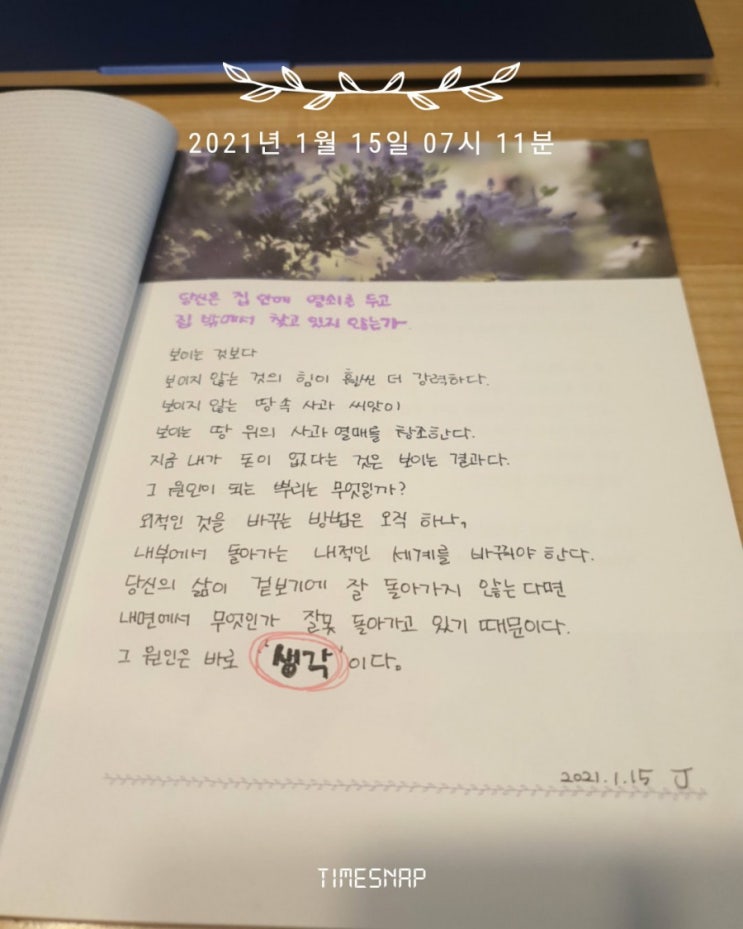 2021년 1월 15일 07시 11분
당신은 집 안에 열쇠를 두고
집 밖에서 찾고 있지 않는가.
보이는 것보다
보이지 않는 것의 힘이 훨씬 더 강력하다.
보이지 않는 땅속 사과 씨앗이
보이는 땅 위의 사과 열매를 창조한다.
지금 내가 돈이 없다는 것은 보이는 결과다.
그 원인이 되는 뿌리는 무엇일까?
외적인 것을 바꾸는 방법은 오직 하나,
내부에서 돌아가는 내적인 세계를 바꿔야 한다.
당신의 삶이 겉보기에 잘 돌아가지 않는다면
내면에서 무엇인가 잘못 돌아가고 있기 때문이다.
그 원인은 바로 '생각'이다.
2021.1.15 J
TIMESNAP